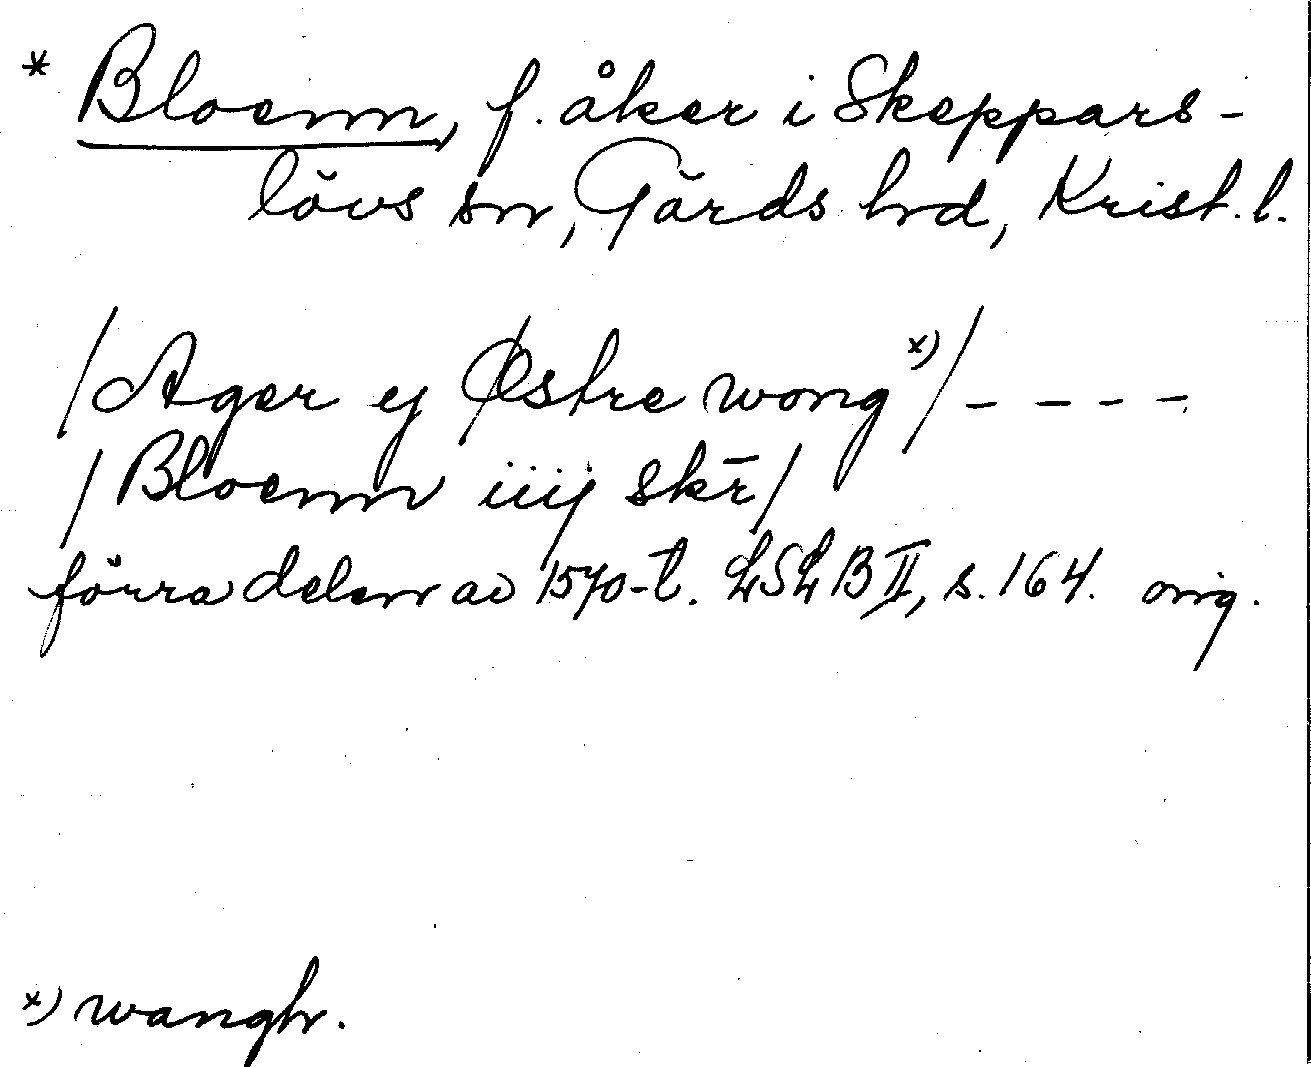 * Bloenn, f. åker i Skeppars-
lövs sn, Gärds hrd, Krist. l.
/Ager ej Østre wong x)/ - - - -
/Bloenn iiij skr̄/
förra delen av 1570-t. LSLB II, s. 164. orig.
x) wangh.